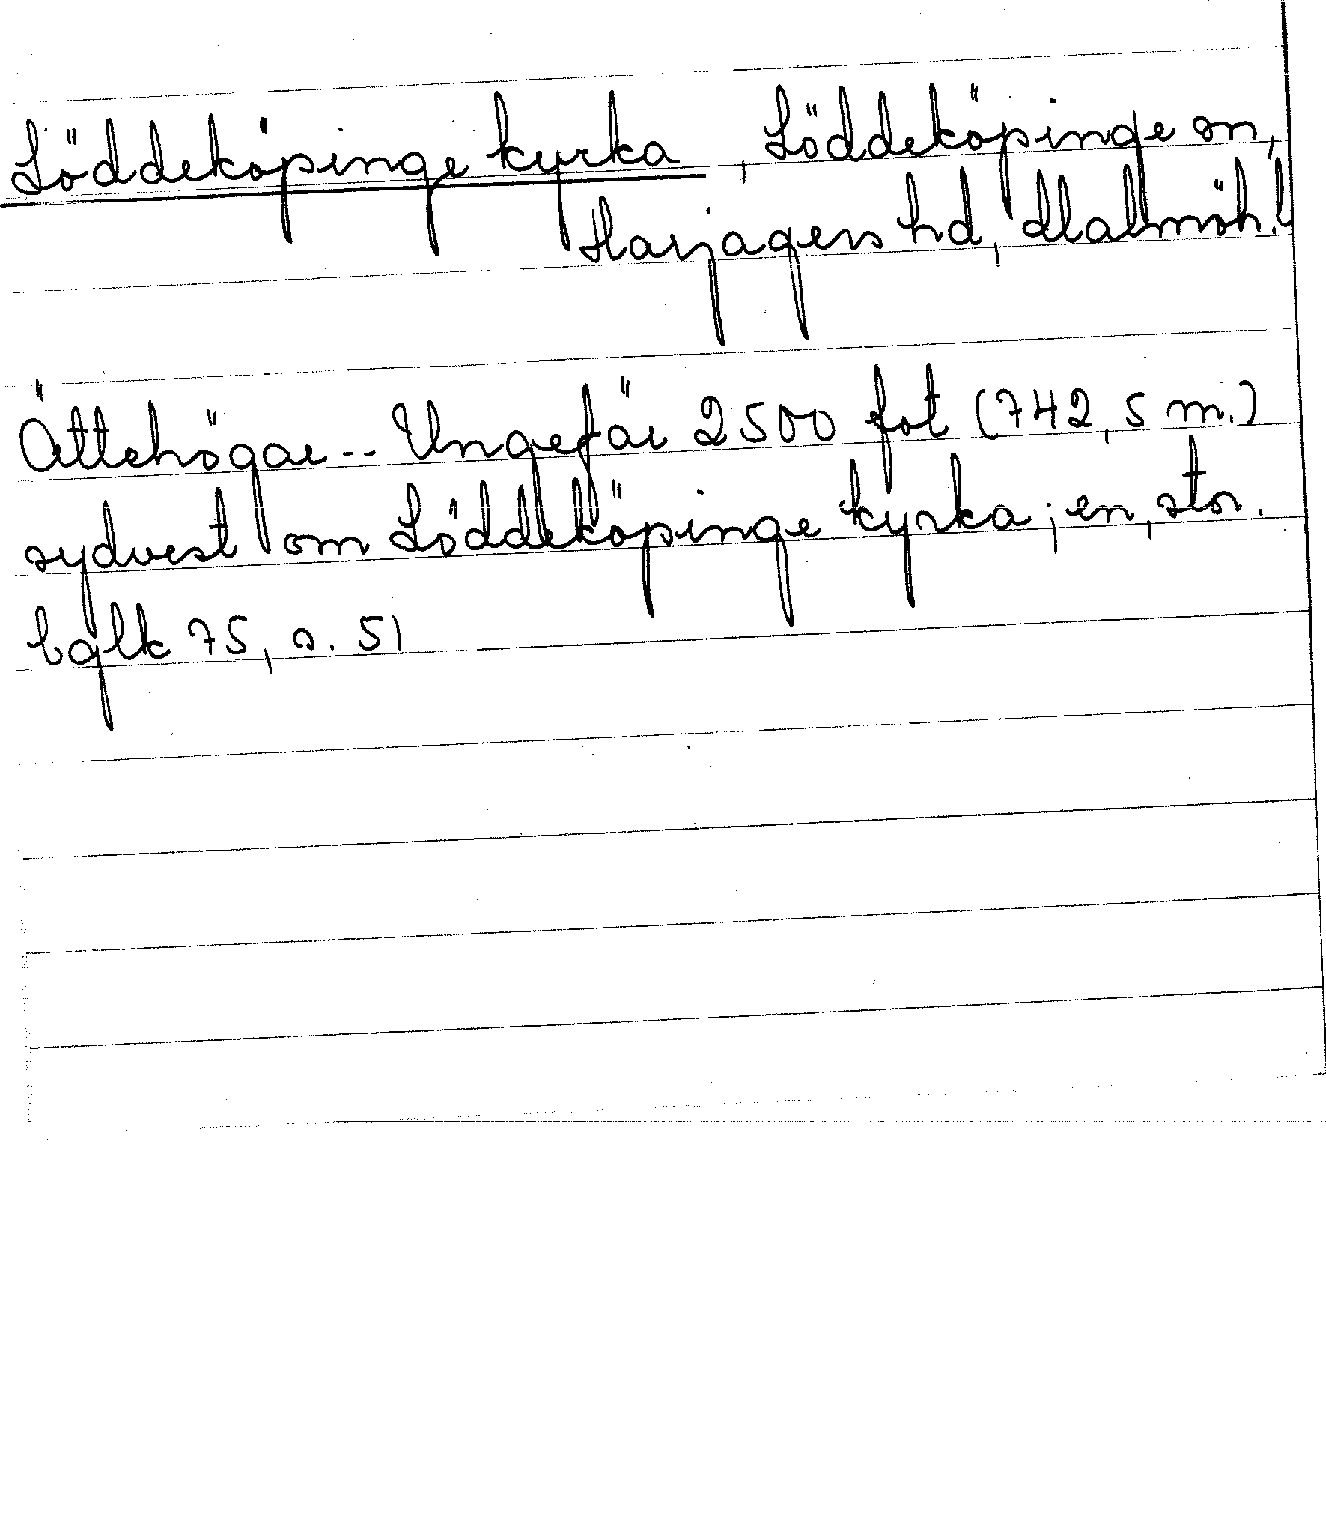 Löddeköpinge kyrka, Löddeköpinge sn,
Harjagers hd, Malmöh. l
Ättehögar.. Ungefär 2500 fot (742,5 m.)
sydvest om Löddeköpinge kyrka; en, stor.
bqlk 75, s. 51